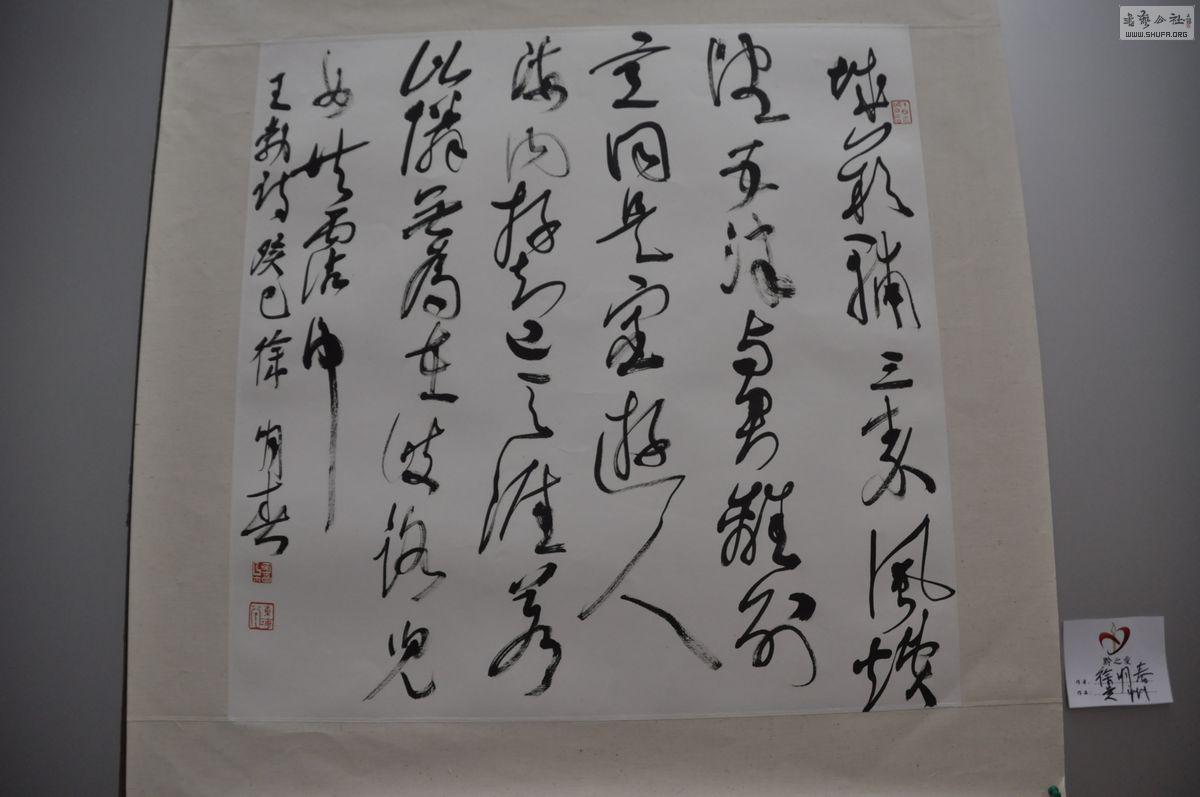 城闕輔三秦風煙
望五津與君離別
意同是宦遊人
海内存知己天涯若
比隣無為在歧路兒
女共霑巾
王勃詩癸巳徐明春
書藝公社
WWW.SHUFA.ORG
黔之爱
作者:徐明春
作品:贵州